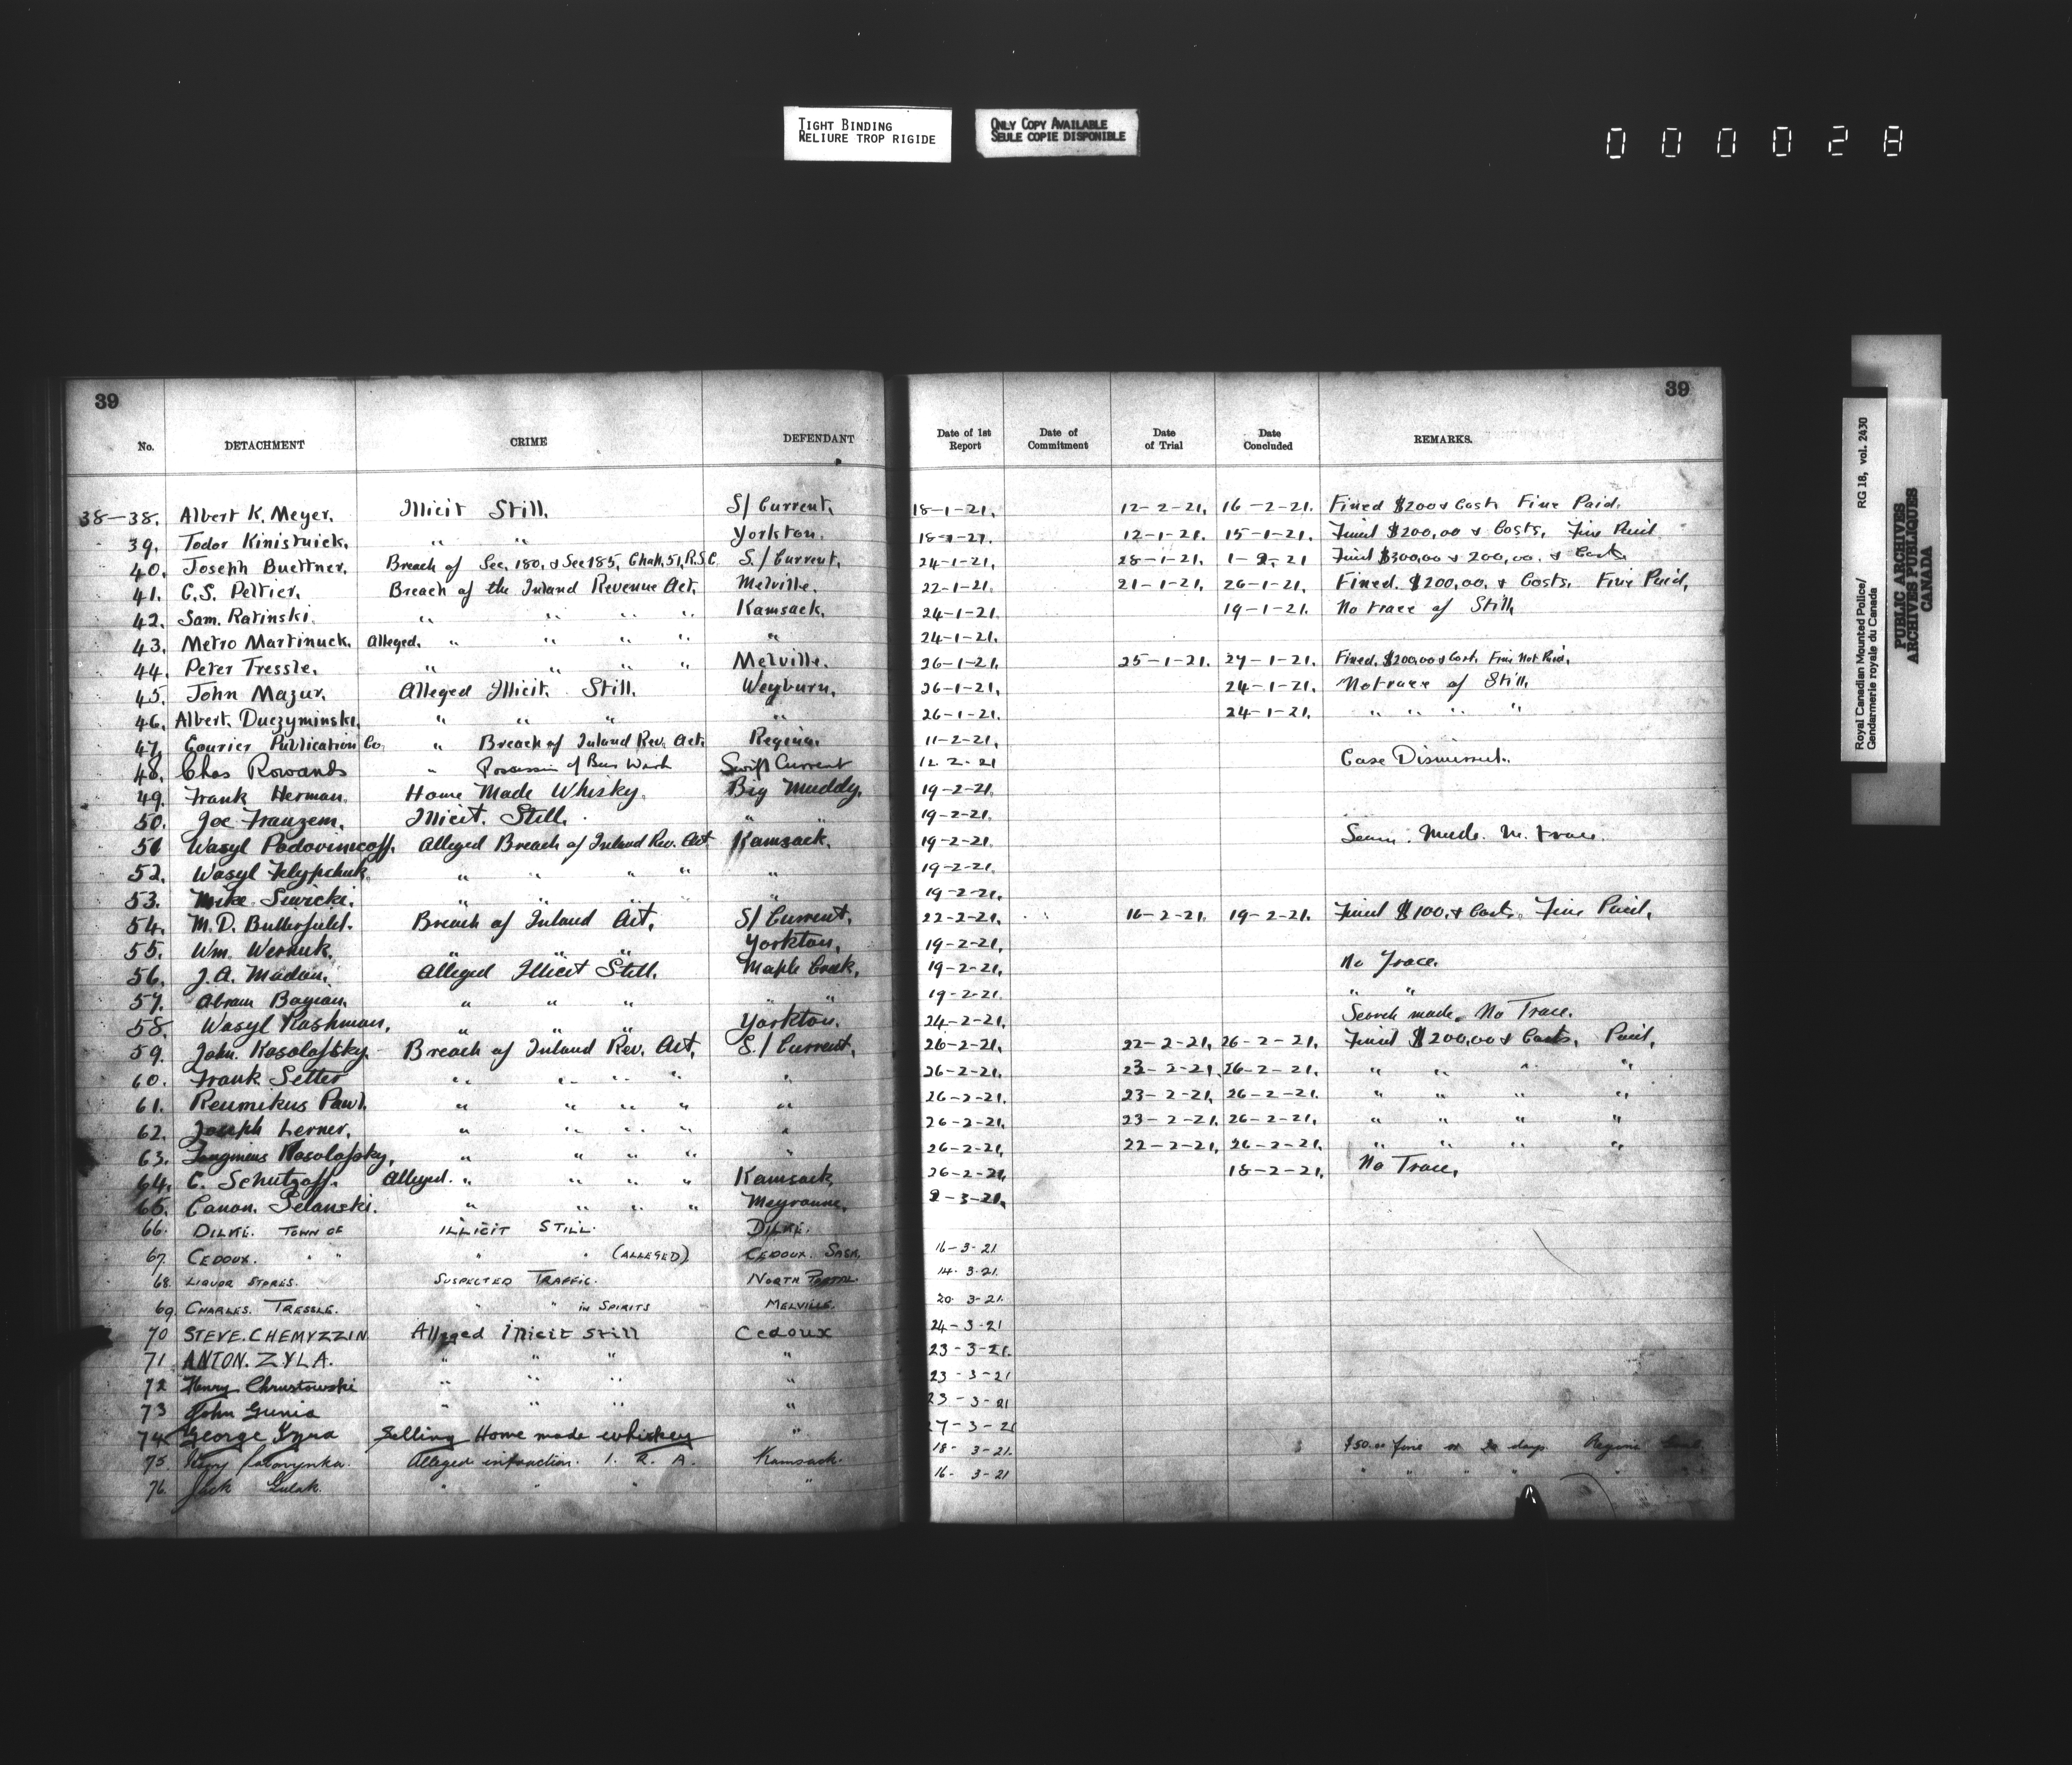 TIGHT BINDING
RELIURE TROP RIGIDE
ONLY COPY AVAILABLE
SEULE COPIE DISPONIBLE
000028
39 39
No. DETACHMENT CRIME DEFENDANT Date of 1st Report Date of Commitment Date of Trial Date Concluded REMARKS.
38-38. Albert K. Meyer. Illicit Still. S/ Current. 18-1-21. 12-2-21. 16-2-21. Fined $200 & Costs Fine Paid.
39. Todor Kinistuick. " " Yorkton. 18-1-21. 12-1-21. 15-1-21. Fined $200,00 & Costs. Fine Paid
40. Joseph Buettner. Breach of Sec, 180, & Sec 185, Chap. 51, R.S.C. S./ Current. 24-1-21. 28-1-21. 1-2-21 Fined $300,00 & 200,00. & Costs
41. C.S. Peltier. Breach of the Inland Revenue Act. Melville. 22-1-21. 21-1-21. 26-1-21. Fined. $200,00. & Costs. Fine Paid,
42. Sam. Ratinski. " " " " Kamsack. 24-1-21. 19-1-21. No trace of Still
43. Metro Martinuck. Alleged. " " " " " 24-1-21.
44. Peter Tressle. " " " " Melville. 26-1-21. 25-1-21. 27-1-21. Fined. $200,00 & Cost. Fine Not Paid.
45. John Mazur. Alleged Illicit Still. Weyburn. 26-1-21. 24-1-21. No trace of Still
46. Albert. Duczyminski. " " " " 26-1-21. 24-1-21. " " " "
47. Courier Publication Co. " Breach of Inland Rev. Act. Regina. 11-2-21.
48. Chas Rowands " Possession of Beer Wash Swift Current 12 2-21 Case Dismissed.
49. Frank Herman. Home Made Whisky. Big Muddy. 19-2-21.
50. Joe Franzem. Illicit. Still. " " 19-2-21.
51 Wasyl Podovinicoff. Alleged Breach of Inland Rev. Act Kamsack. 19-2-21. Made. trace.
52. Wasyl " " " " " 19-2-21.
53. Mike " " " " " 19-2-21.
54. M.D. Butterfield. Breach of Inland Act. S/ Current. 22-2-21. 16-2-21. 19-2-21. Fined $100. & Costs. Fine Paid.
55. Wm. Wernuk. " " " Yorkton. 19-2-21.
56. J.A. Madan. Alleged Illicit Still. Maple Creek. 19-2-21. No Trace.
57. Abram " " " " " 19-2-21. " "
58. Wasyl Kashman. " " " Yorkton. 24-2-21. Search made. No Trace.
59. John. Kosolofsky. Breach of Inland Rev. Act. S./ Current. 26-2-21. 22-2-21. 26-2-21. Fined $200,00 & Costs. Paid.
60. Frank Setter " " " " " 26-2-21. 23-2-21. 26-2-21. " " " "
61. Reumikus Pawl. " " " " " 26-2-21. 23-2-21. 26-2-21. " " " "
62. Joseph Lerner. " " " " " 26-2-21. 23-2-21. 26-2-21. " " " "
63. Kosolofsky. " " " " " 26-2-21. 22-2-21. 26-2-21. " " " "
64. C. Schutzoff. Alleged. " " " " Kamsack 26-2-21. 18-2-21. No Trace.
65. Canon. Selanski. " " " " Meyronne. 2-3-21.
66. DILKE. TOWN OF ILLICIT STILL. DILKE.
67. CEDOUX. " " " " (ALLEGED) CEDOUX. SASK. 16-3-21
68. LIQUOR STORES. SUSPECTED TRAFFIC. NORTH PORTAL. 14. 3.21.
69. CHARLES. TRESSLE. " " IN SPIRITS MELVILLE. 20. 3-21.
70 STEVE. CHEMYZZIN Alleged Illicit Still Cedoux 24-3-21
71 ANTON. ZYLA. " " " " 23-3-21.
72 Henry Chrustowski " " " " 23-3-21
73 John Gunia " " " " 23-3-21
74 George Selling Home made whiskey " 27-3-21
75. Alleged infraction. I. R. A. Kamsack. 18-3-21. $50.00 fine or 30 days. Regina
76. Jack Gulak. " " " " 16-3-21 " " " " "
Royal Canadian Mounted Police/ RG 18, vol. 2430
Gendarmerie royale du Canada
PUBLIC ARCHIVES
ARCHIVES PUBLIQUES
CANADA